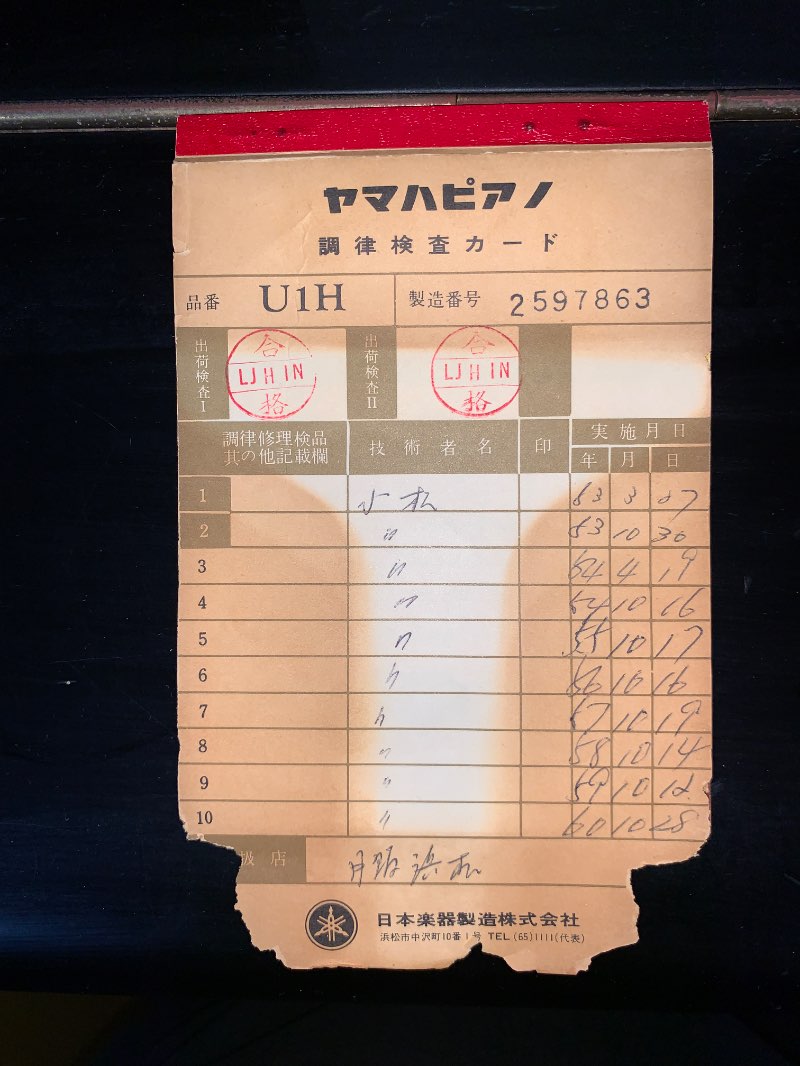 ヤマハピアノ
調律検査カード
品番 U1H 製造番号 2597863
出荷検査I 合格 LJ H IN 出荷検査II 合格 LJ H IN
調律修理検品其の他記載欄 技術者名 印 実施月日
年 月 日
1 小松 53 3 27
2 〃 53 10 30
3 〃 54 4 19
4 〃 54 10 16
5 〃 55 10 17
6 〃 56 10 16
7 〃 57 10 19
8 〃 58 10 14
9 〃 59 10 12
10 〃 60 10 28
扱店 浜松
日本楽器製造株式会社
浜松市中沢町10番1号 TEL(65)1111(代表)